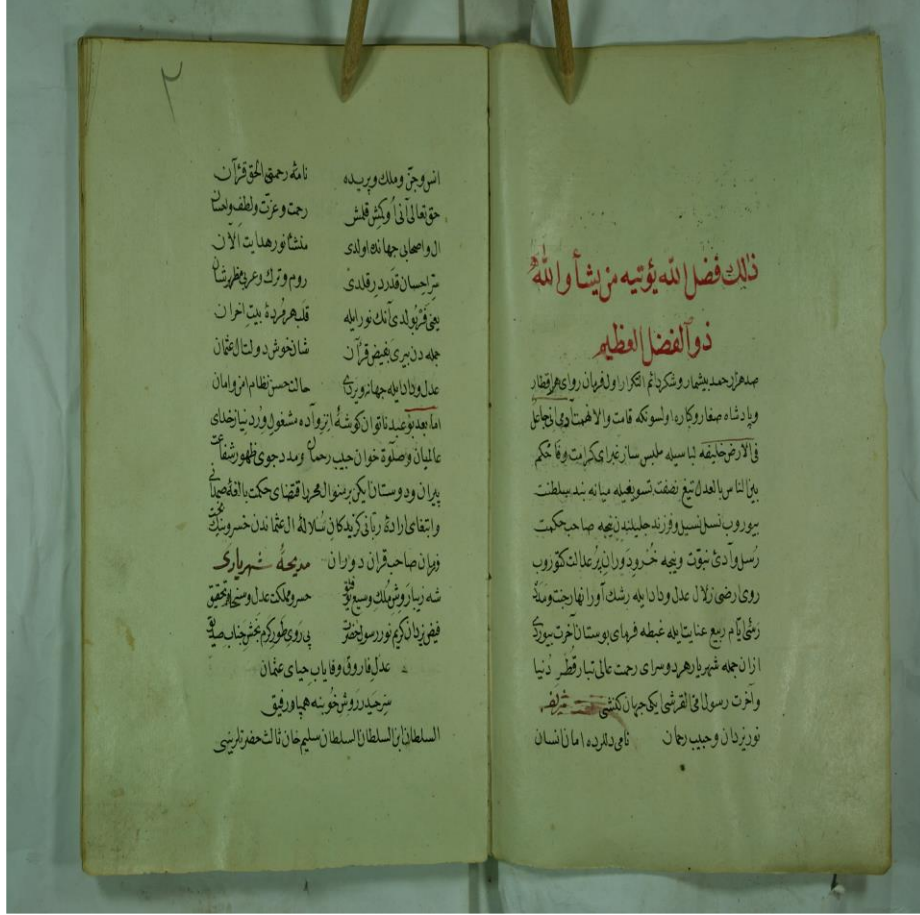 ذلك فضل الله يؤتيه من يشأ والله
ذو الفضل العظيم
صد هزار حمد بيشمار وشكر دائم التكرار اول فرمان رواى هر اقطار
و پادشاه صغار وكباره اولسونكه قامت والا نهمت آدمى انى جاعل
فى الارض خليفه لباسيله ملبس ساز غبراى كرامت وفاحكم
بين الناس بالعدل تيغ نصفت تسويغيله ميانه بند سلطنت
بيوروب نسل نسيل وفرزند جليلندن نيجه صاحب حكمت
رسل وآدئ نبوت ونيجه خسرو دوران پر عدالت كتوروب
روى ارضى زلال عدل ودادايله رشك آور انهار جنت ومدد
رسئ ايام ربيع عنايتايله غبطه فرماى بوستان آخرت بيوردى
از ان جمله شهريار هر دو سراى رحمت عالى تبار قطر دنيا
وآخرت رسول القرشى ايكى جهان كنشى شريف
نور يزدان وحبيب رحمان نامى دللرده امان انسان
٢
انس وجن وملك وپريده نامۀ رحمتى الحق قرآن
حق تعالى آنى اوكش قلمش رحمت وعزت ولطف واحسان
ال واصحابى جهانده اولدى منشأ نور هدايت الآن
سر احسان قدردر قلدى روم وترك وعربى مظهرشان
يعنى فر بولدى آنك نورايله قلب هر مردۀ بيت احزان
جمله دن بيرى بفيض قرآن شان خوش دولت ال عثمان
عدل ودادايله جهانه ويردى حالت حسن نظام امن وامان
اما بعد بو عبد ناتوان كوشۀ انزواده مشغول ورد نياز خداى
عالميان وصلوة خوان حبيب رحمان ومدد جوى ظهور شفاعت
پيران ودوستان ايكن بر منوال محرر باقتضاى حكمت بالغۀ صمدانى
وابتغاى ارادۀ ربانى كزيدكان سلالۀ ال عثماندن خسرو نيك بخت
زمان صاحب قران دوران مديحۀ شهريارى
شه زيبا روش ملك وسيع توفيق خسرو مملكت عدل وسنحاق تحقيق
فيض يزدان كريم نور رسول حضرت پى روى طور كرم بخش جناب صديق
عدل فاروق وفاياب حياى عثمان
سر حيدر روش خوبنه همپا ورفيق
السلطان ابن السلطان السلطان سليم خان ثالث حضرتلرينى